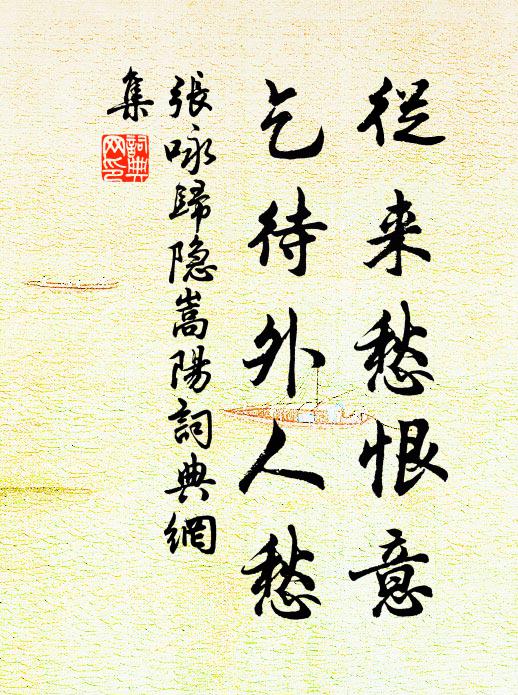 從来愁恨意
乞待外人愁
張咏歸隐嵩陽詞典網
集
詞典
网印